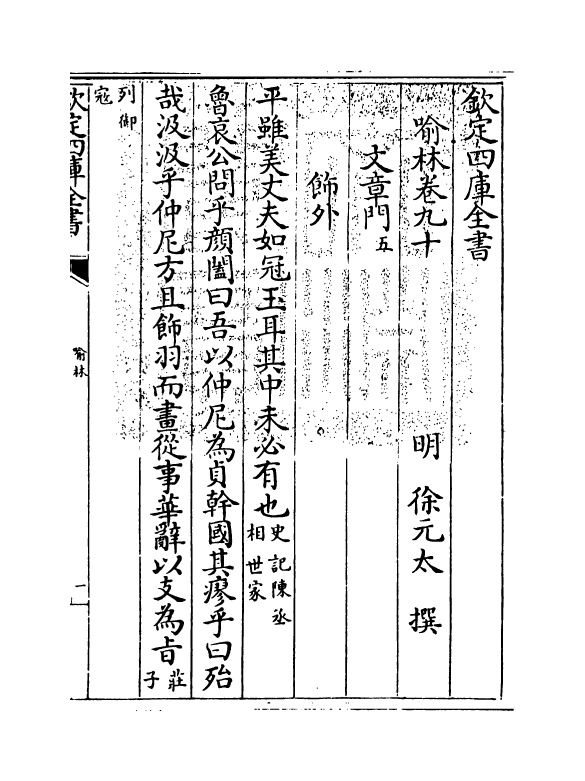 欽定四庫全書
喻林卷九十 明 徐元太 撰
文章門五
飾外
平雖美丈夫如冠玉耳其中未必有也史記陳丞相世家
魯哀公問乎顔闔曰吾以仲尼為貞幹國其瘳乎曰殆
哉汲汲乎仲尼方且飾羽而畫從事華辭以支為旨莊子
列御寇
欽定四庫全書
喻林
一